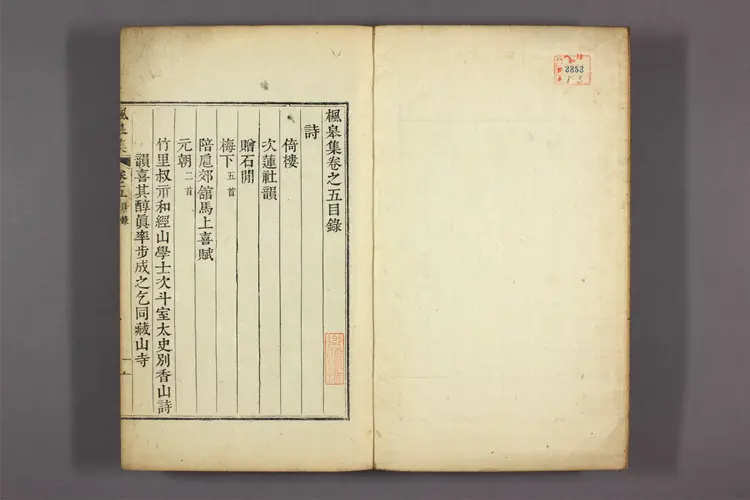 楓皋集卷之五目錄
詩
倚樓
次蓮社韻
贈石閒
梅下五首
陪扈郊舘馬上喜賦
元朝二首
竹里叔示和經山學士次斗室太史別香山詩
韻喜其醇眞率步成之乞同藏山寺
楓皋集 卷之五目錄 一
2353